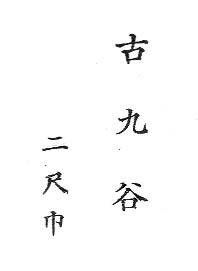 古九谷
二尺巾